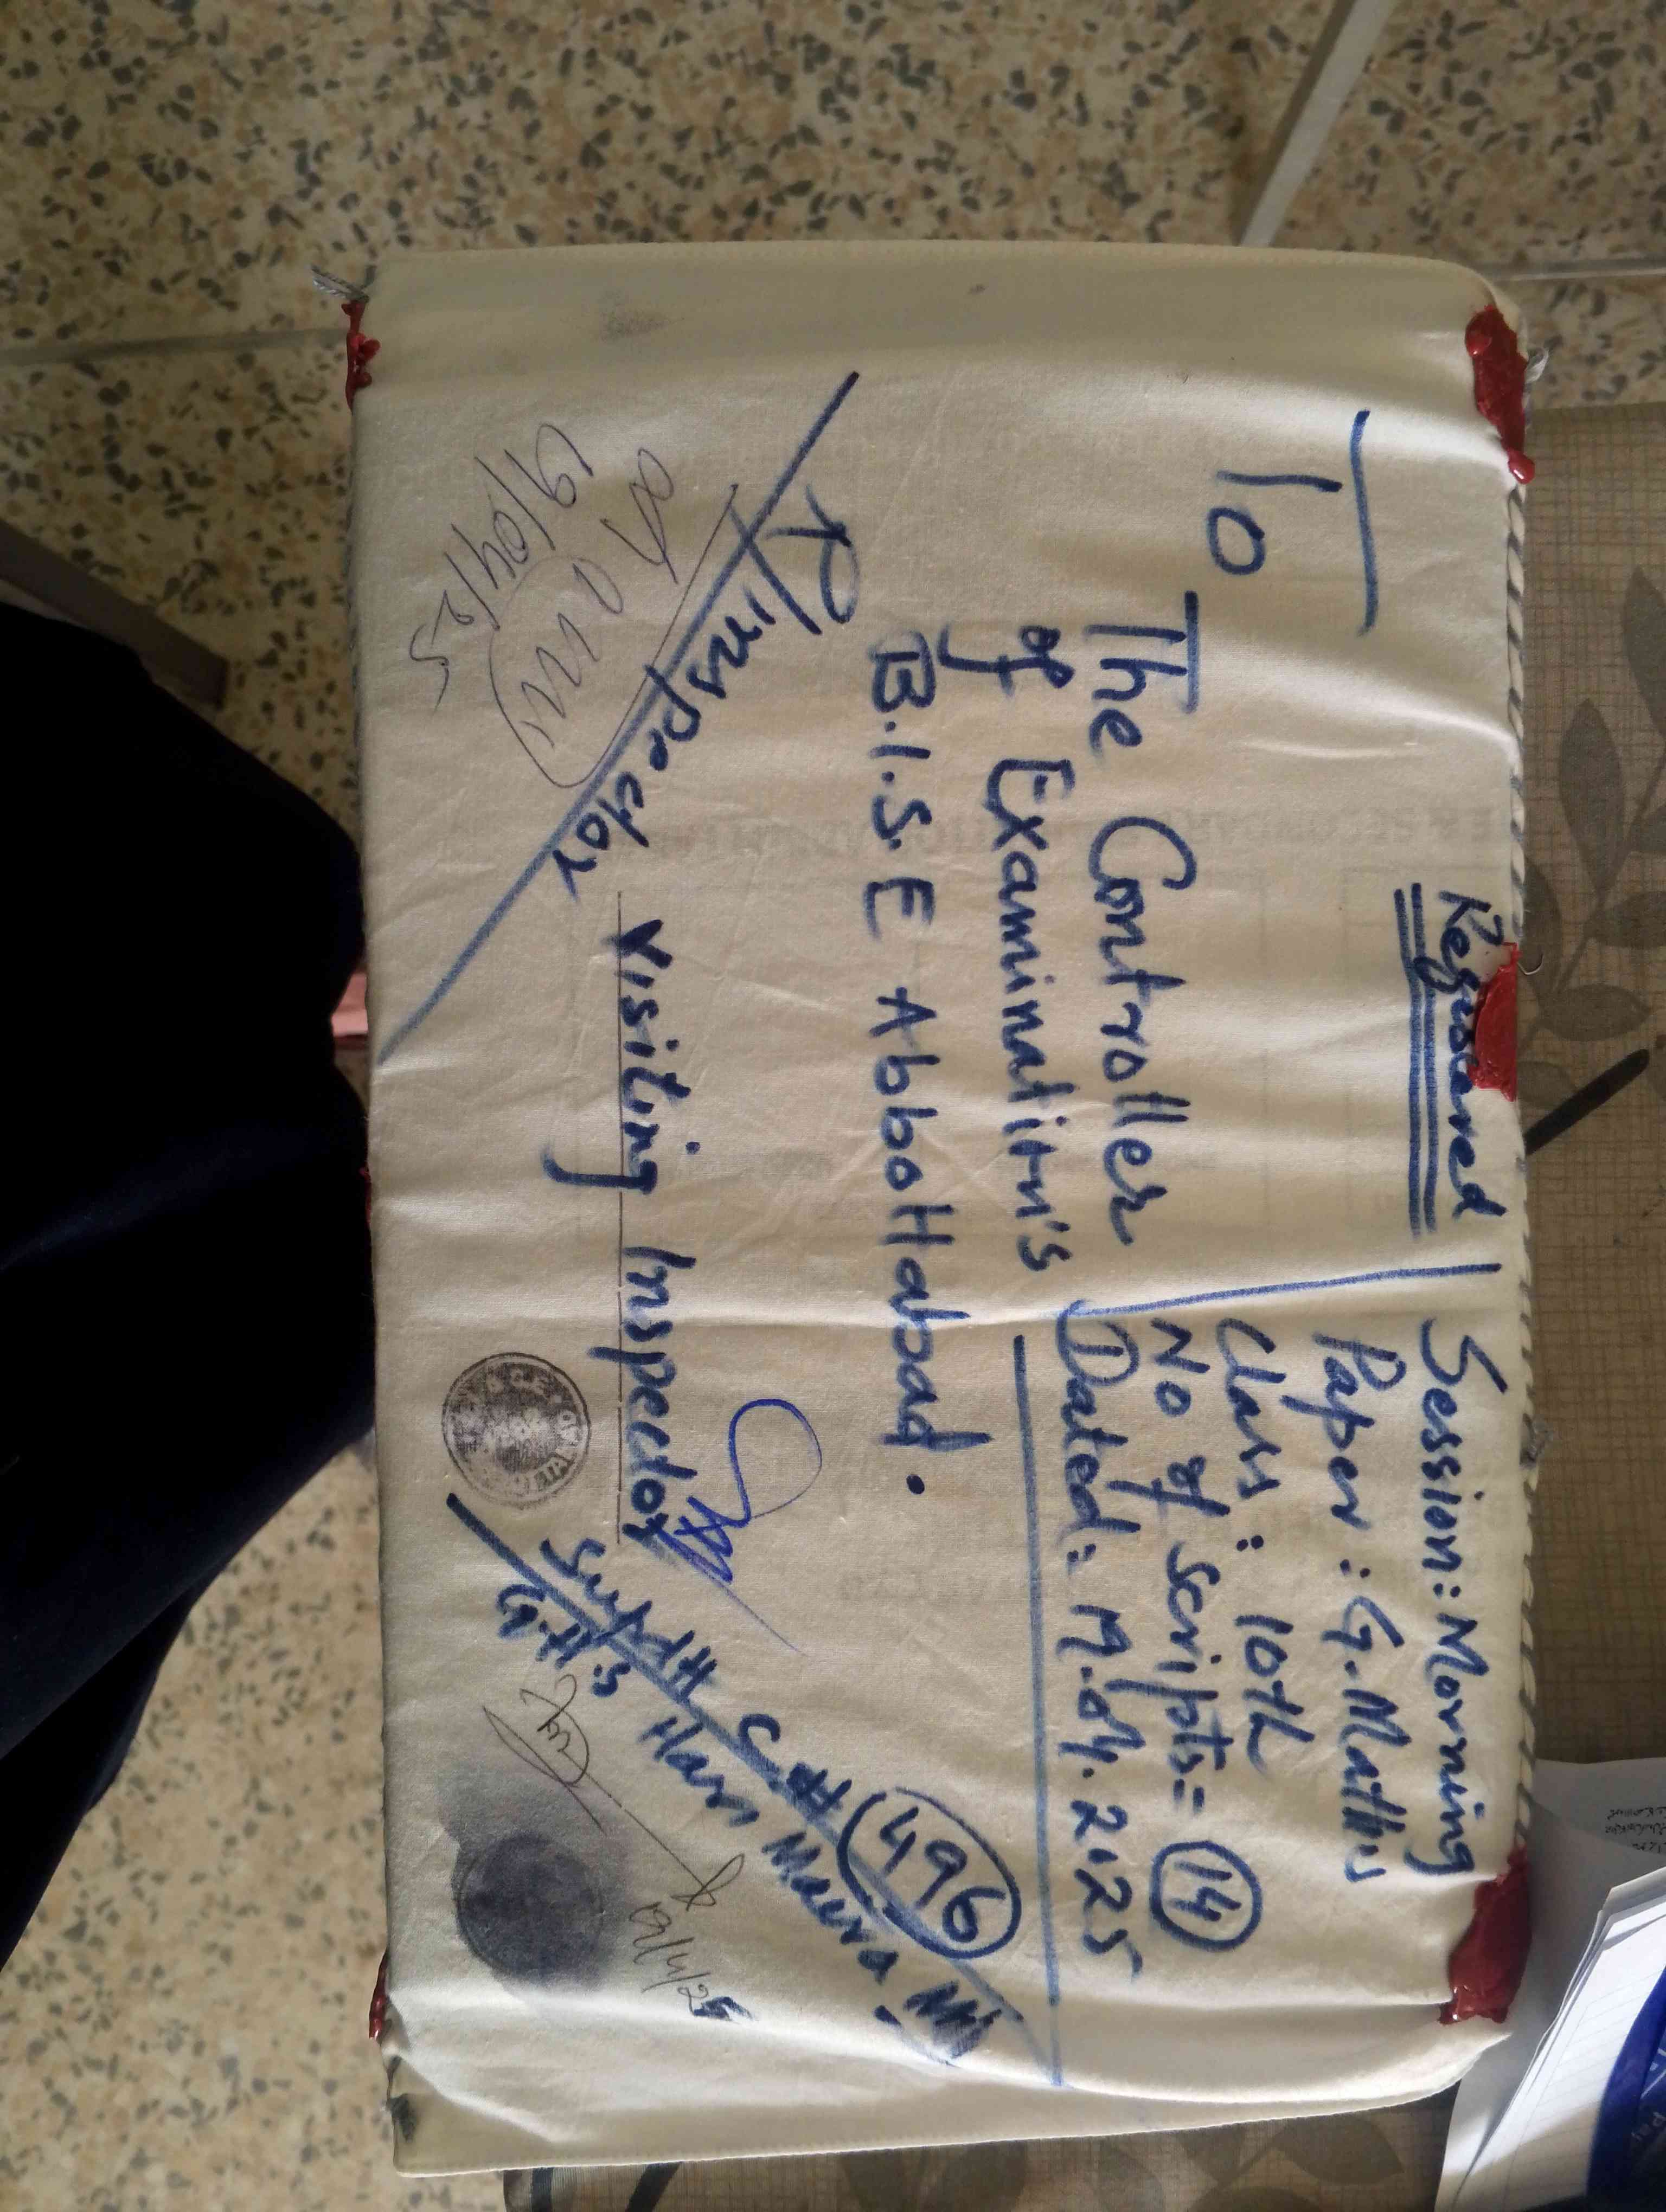 Registered
Session: Morning
Paper: G.Maths
Class: 10th
No of scripts = 14
Dated: 19.04.2025
To
The Controller
of Examination's
B.I.S.E Abbottabad.
R/Inspector
19/04/25
Visiting Inspector
Supdt C#496
G.H.S
19/4/25